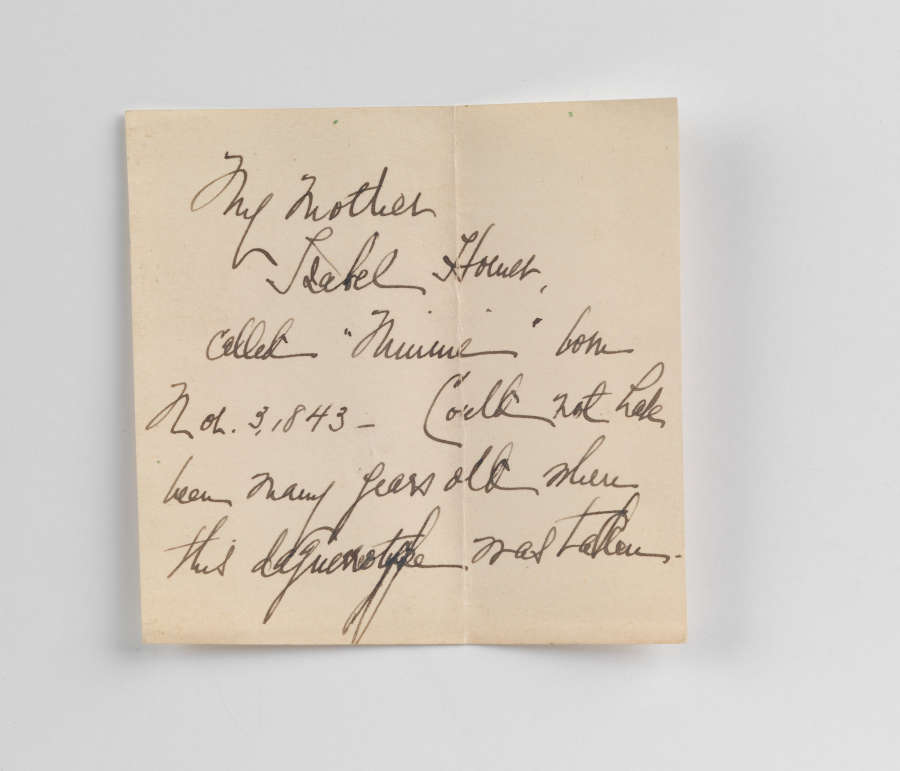 My Mother
Isabel Homer,
called "Minnie" born
Nov. 3, 1843 – Could not have
been many years old when
this daguerrotype was taken.